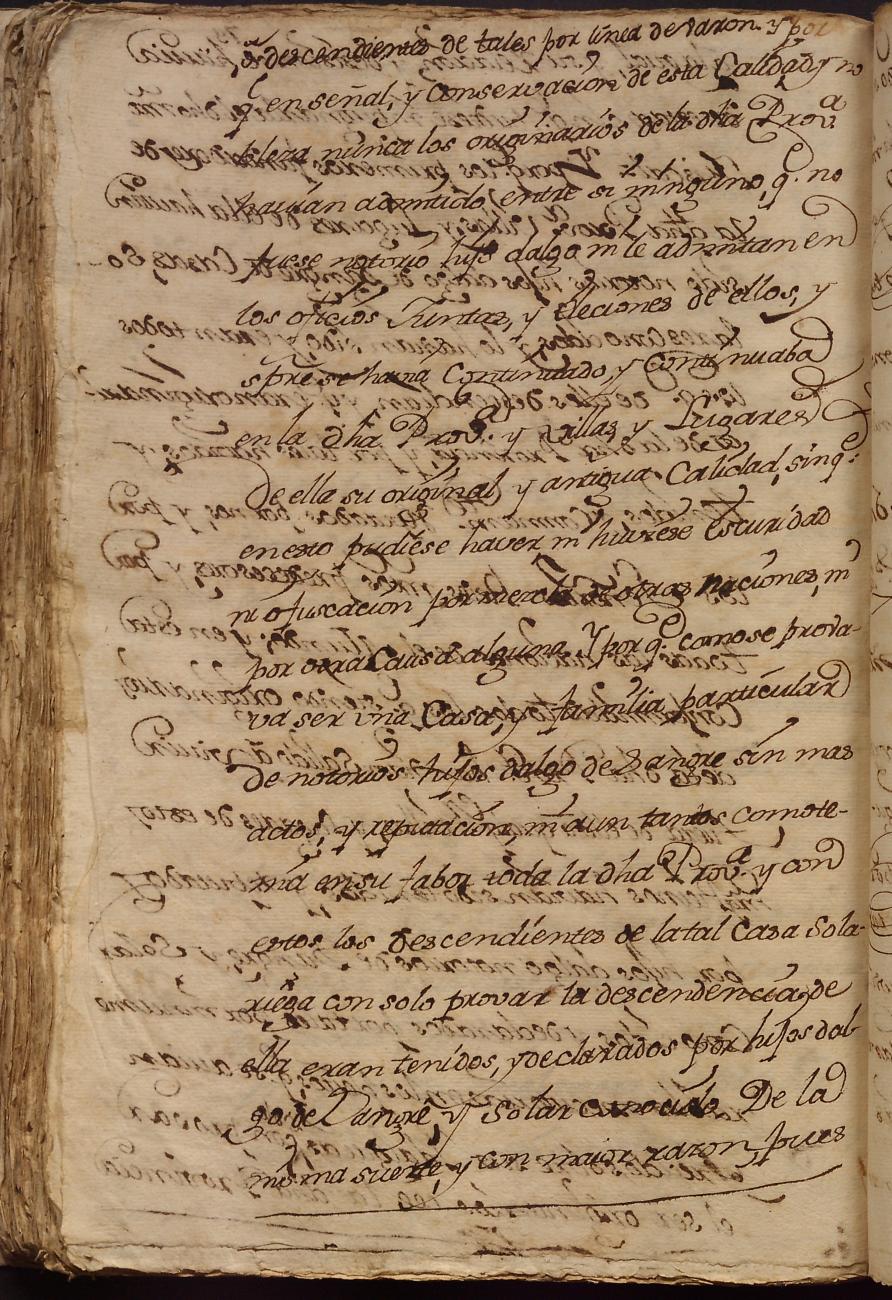 descendientes de tales por línea de varon. y por
q̃ en señal, y conservacion de esta Calidad, y no
bleza nunca los originarios de la dha Prov.ª
havian admitido entre si ninguno, q.e no
fuese notorio hijo dalgo ni le admitan en
los oficios Juntas, y Eleciones de ellos, y
spre se havia Continuado, y Continuaba
en la dha Prov.ª y Villas y Lugares
De ella su original, y antigua Calidad, sin q.e
en esto pudiese haver ni huviese escuridad
ni ofuscacion por mezcla de otras naciones, ni
por otra Causa alguna. Y por q.e como se prova-
va ser vna Casa, y familia particular
De notorios hijos dalgo de Sangre sin mas
actos, y reputacion, ni aun tantos como te-
nia en su fabor toda la dha Prov.ª y con
estos los Descendientes de la tal Casa Sola-
riega con solo provar la descendencia de
ella eran tenidos, y declarados por hijos dal-
go de Sangre, y Solar conocido De la
misma suerte, y con maior razon, pues